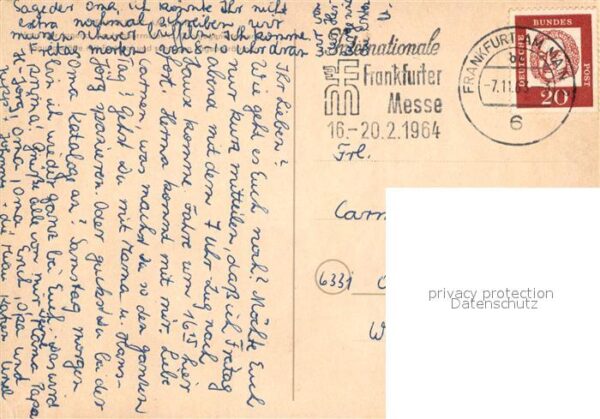 Sage der Oma, ich könnte Ihr nicht
extra nochmal schreiben, wir
müssen schwer büffeln. Ich komme
Freitag morgen vor 10 Uhr dran
Ihr Lieben!
Wie geht es Euch noch? Möchte Euch
nur kurz mitteilen, daß ich Freitag
abend mit dem 7 Uhr Zug nach
Hause komme. Fahre um 16¹⁵ hier
fort. Herma kommt mit mir. Liebe
Carmen, was machst du so den ganzen
Tag? Gehst Du mit Mama u. Hans-
Jörg spazieren. Oder guckst du bei der
Oma Kataloge an? Samstag morgen
bin ich wieder ganz bei Euch. Das wird
prima. Grüße alle von mir, Mama, Papa
H-Jörg, Oma, Oma, Opa und
Internationale
Frankfurter
Messe
16.-20.2.1964
FRANKFURT AM MAIN
-7.11.63
6
DEUTSCHE
BUNDES
POST
20
Frl.
Carm
6331
W
privacy protection
Datenschutz